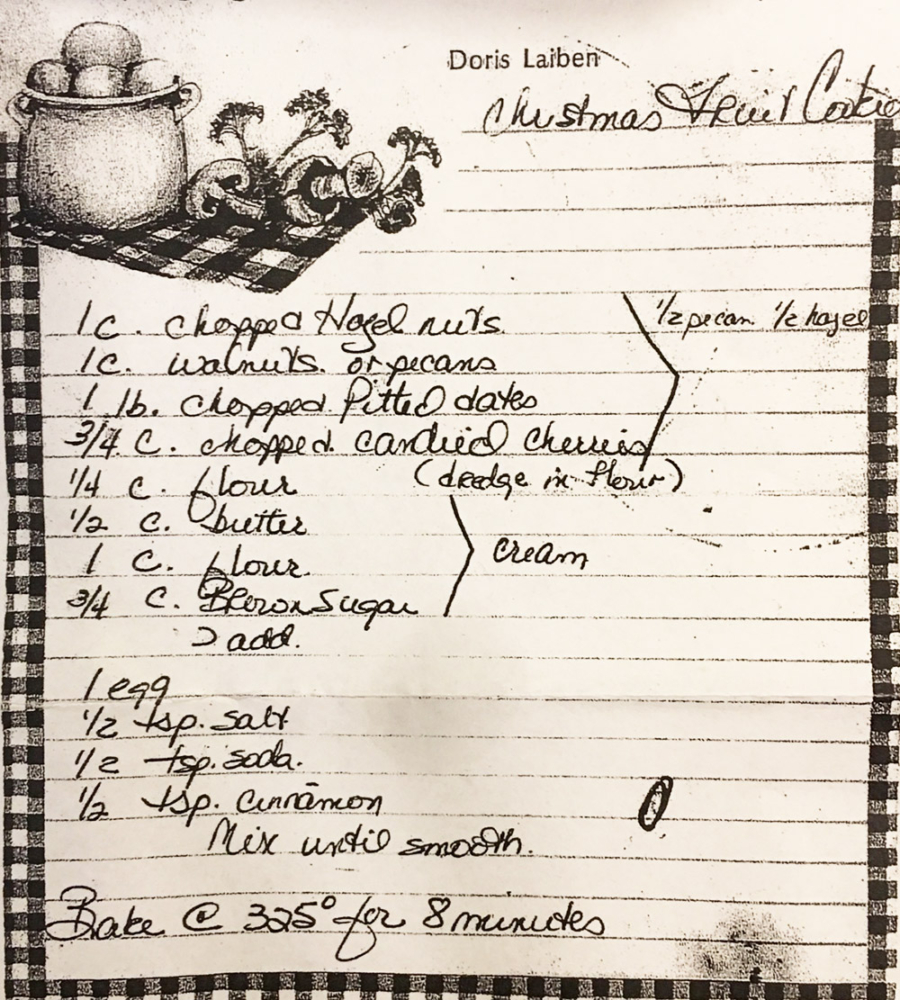 Doris Laiben
Christmas Fruit Cookie
1 c. chopped Hazel nuts 1/2 pecan 1/2 hazel
1 c. walnuts or pecans
1 lb. chopped Pitted dates
3/4 c. chopped candied cherries
1/4 c. flour (dredge in flour)
1/2 c. butter
1 c. flour cream
3/4 c. Brown Sugar
add.
1 egg
1/2 tsp. salt
1/2 tsp. soda.
1/2 tsp. cinnamon
Mix until smooth.
Bake @ 325° for 8 minutes